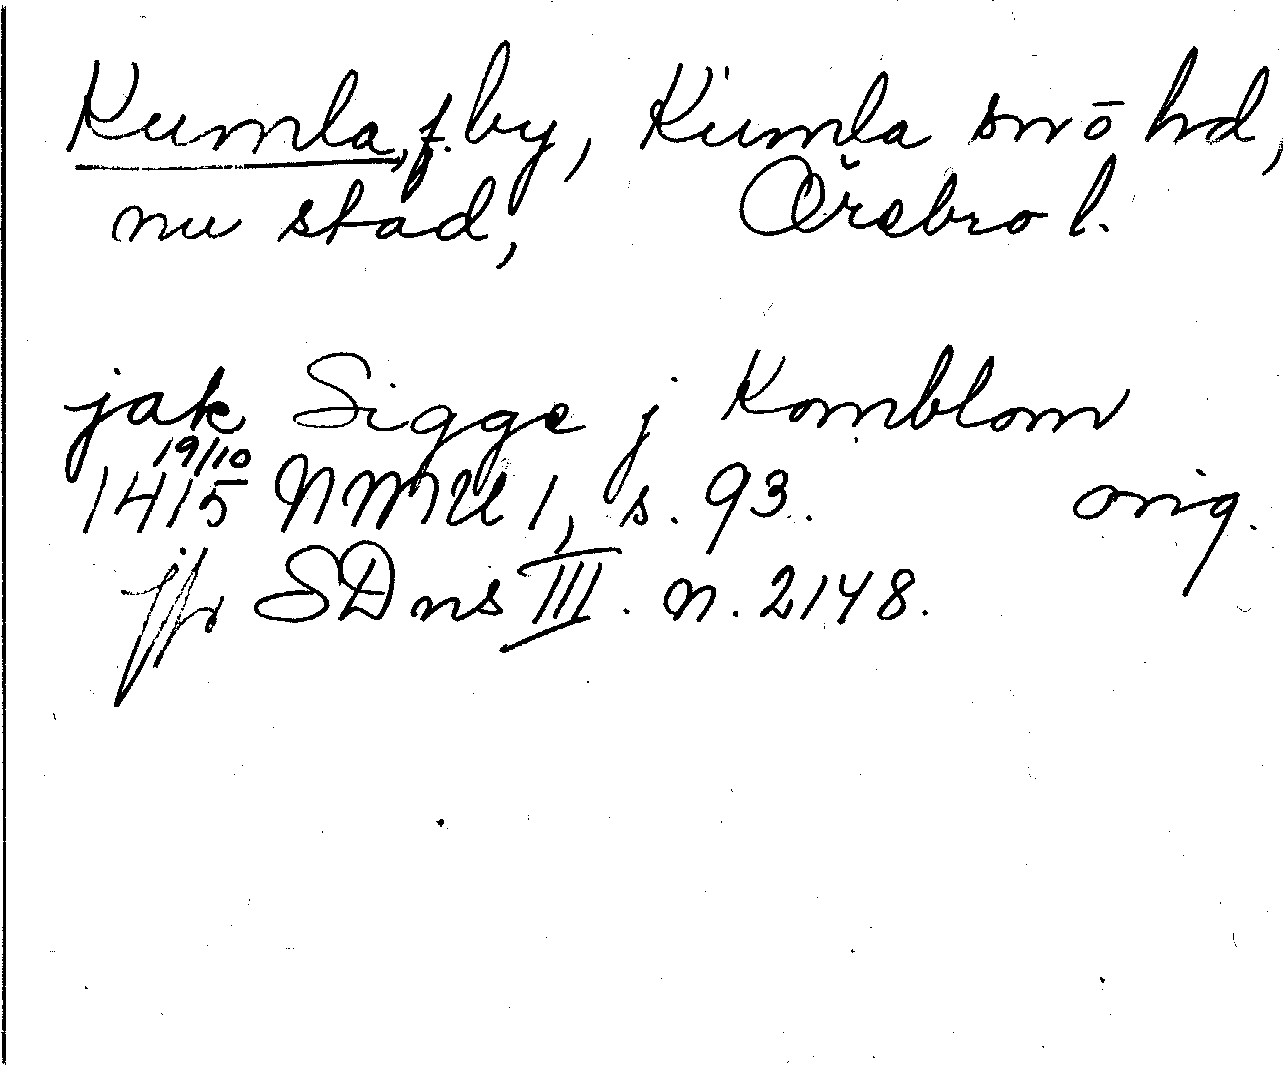 Kumla, f. by, Kumla sn o hd,
nu stad, Örebro l.
jak Sigge j Komblom
19/10
1415 NMU 1, s. 93. orig.
jfr SDns III. n. 2148.